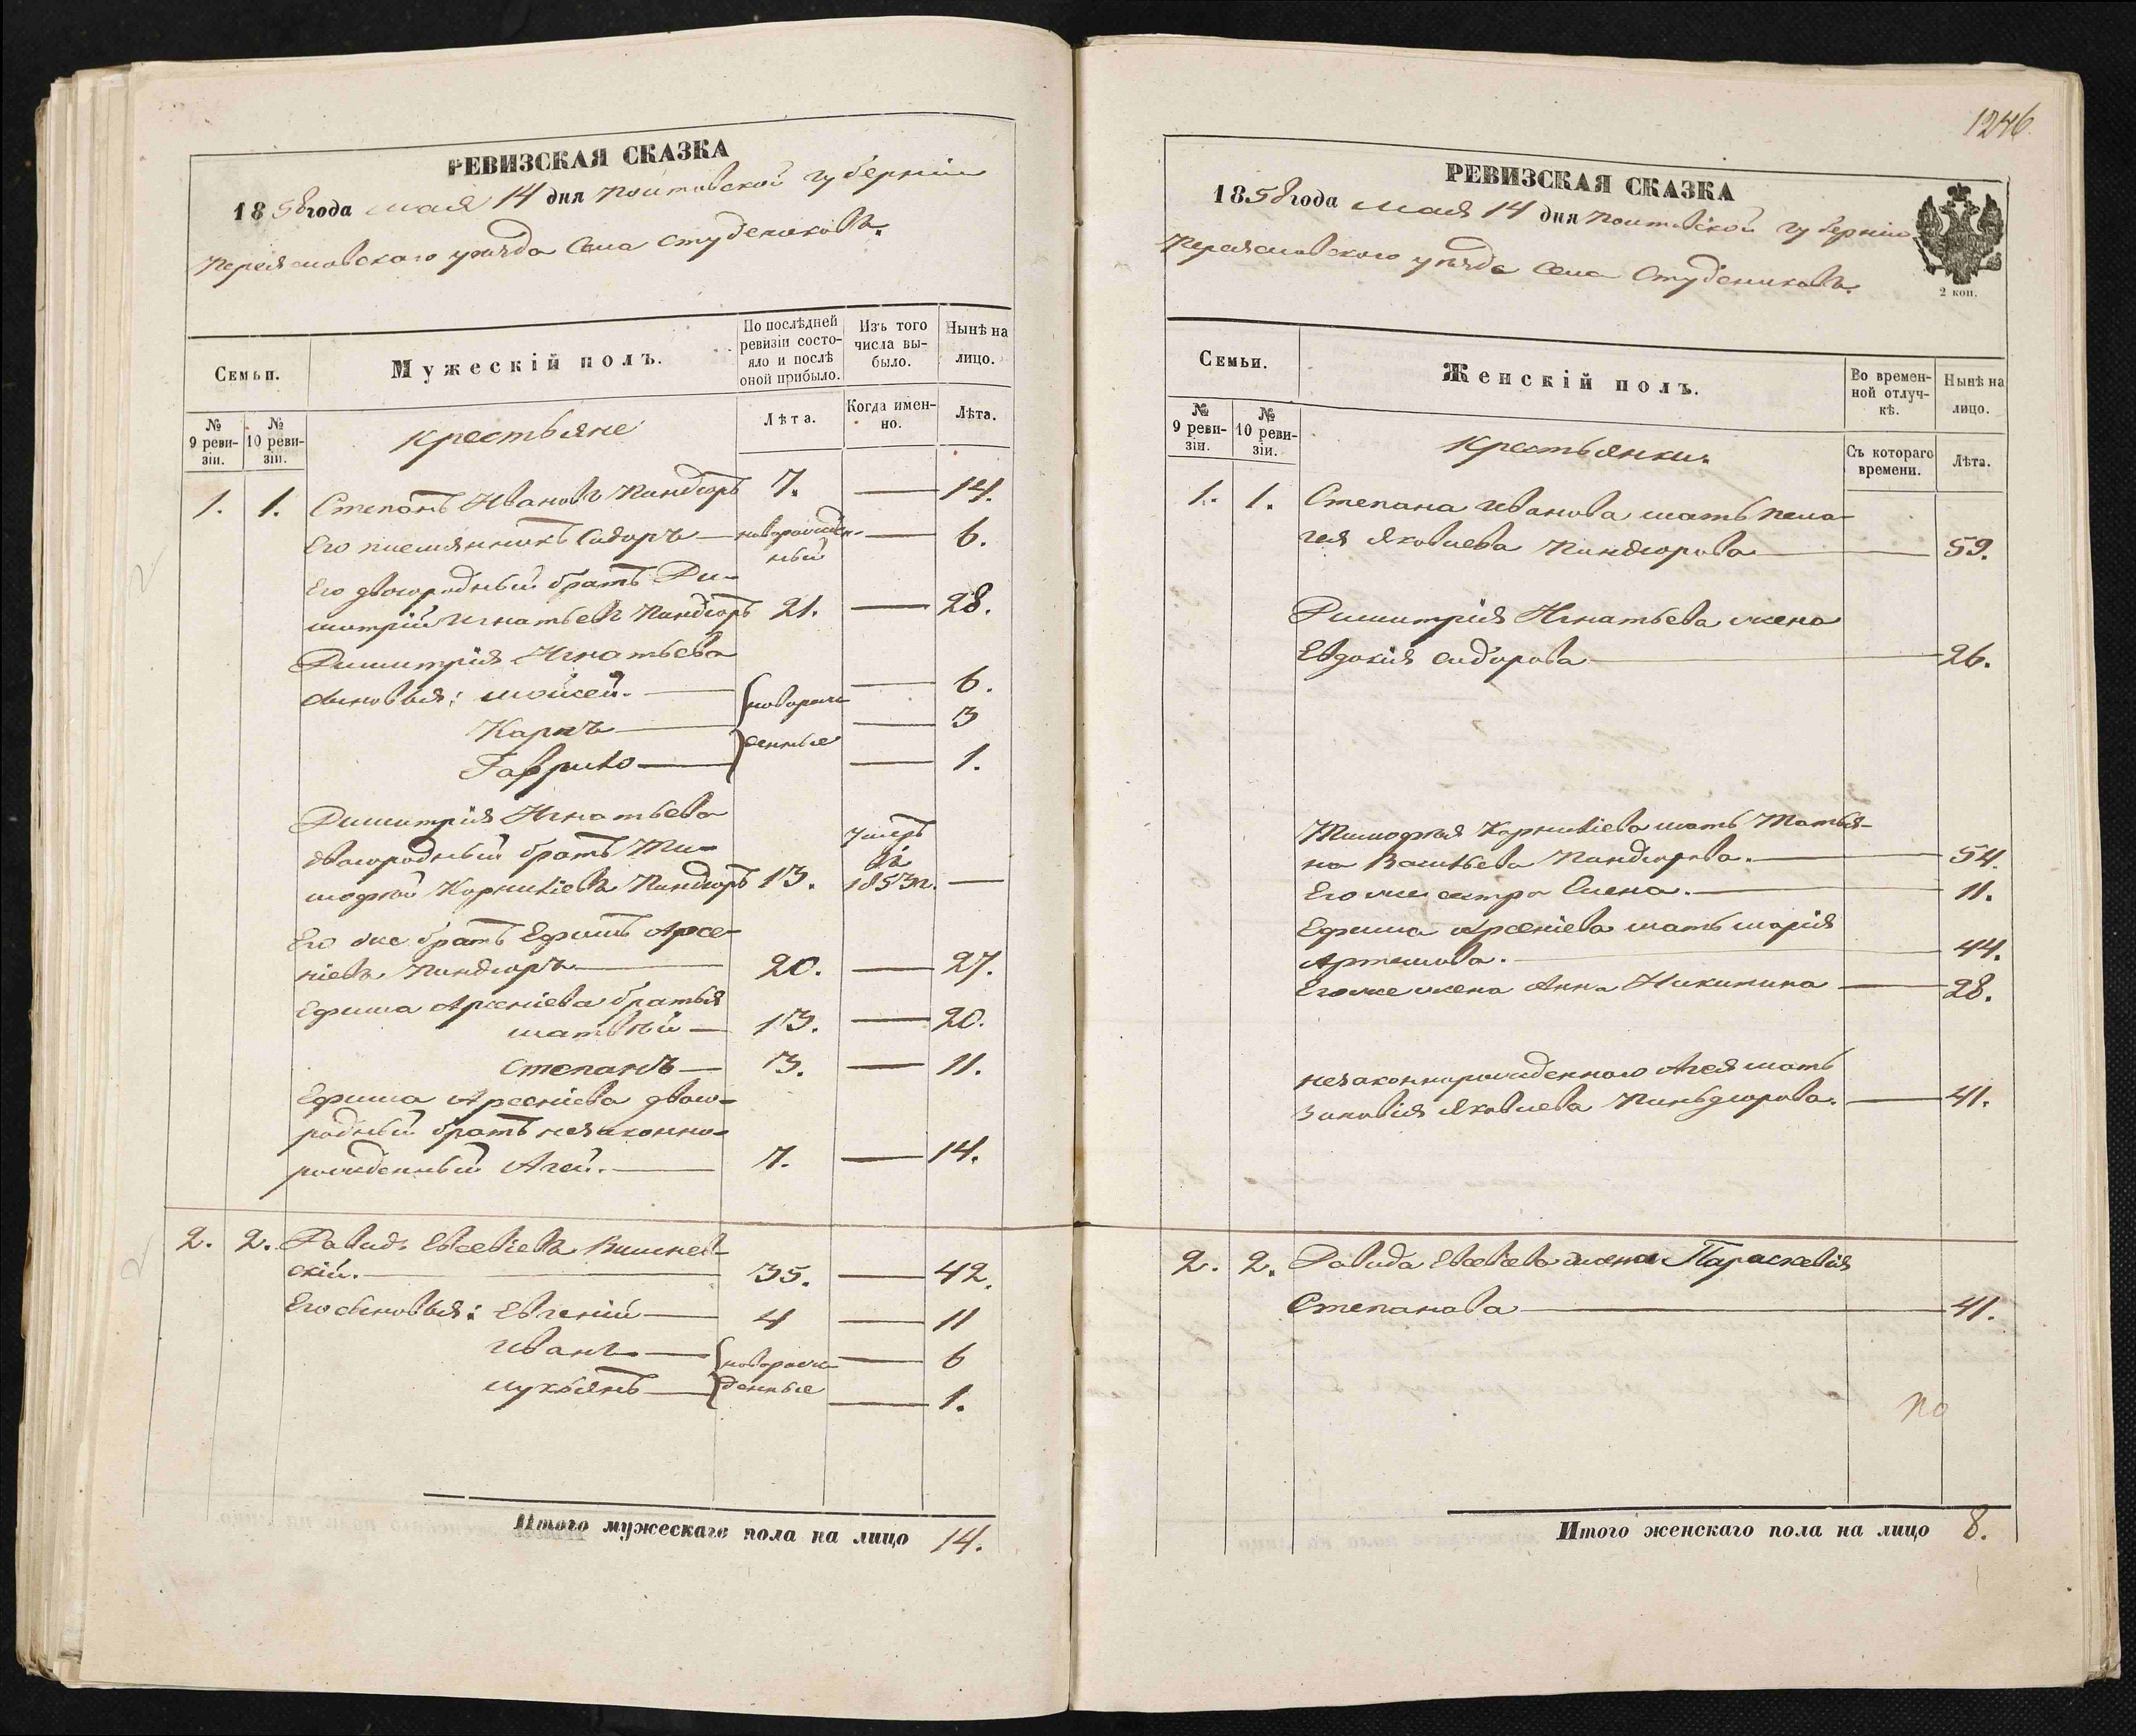 РЕВИЗСКАЯ СКАЗКА
1858 года мая 14 дня Полтавской губерніи
Переяславскаго уѣзда села Студениковъ.
Семьи.
Мужескій полъ.
По послѣдней ревизіи состояло и послѣ оной прибыло.
Изъ того числа выбыло.
Нынѣ на лицо.
№ 9 ревизіи.
№ 10 ревизіи.
Крестьяне
Лѣта.
Когда именно.
Лѣта.
1. 1. Степанъ Ивановъ Пиндюръ 7. — 14.
Его племянникъ Сидоръ — новорожден- — 6.
ный
Его двоюродный братъ Ди-
митрій Игнатьевъ Пиндюръ 21. — 28.
Димитрія Игнатьева
сыновья: Мойсей. — новорож- — 6.
Карпъ — — 3
Гаврило — денные — 1.
Димитрія Игнатьева
двоюродный братъ Ти- умеръ
мофей Корниліевъ Пиндюръ 13. въ 1853 г. —
Его же братъ Ефимъ Арсе-
ніевъ Пиндюръ — 20. — 27.
Ефима Арсеніева братья
Матвѣй — 13. — 20.
Степанъ — 3. — 11.
Ефима Арсеніева двою-
родный братъ незаконно-
рожденный Агей. — 7. — 14.
2. 2. Давидъ Евсевіевъ Вишнев-
скій. — 35. — 42.
Его сыновья: Евгеній — 4 — 11
Иванъ — новорож- — 6
Лукьянъ — денные — 1.
Итого мужескаго пола на лицо 14.
1246
РЕВИЗСКАЯ СКАЗКА
1858 года мая 14 дня Полтавской губерніи
Переяславскаго уѣзда села Студениковъ.
2 коп.
Семьи.
Женскій полъ.
Во временной отлучкѣ.
Нынѣ на лицо.
№ 9 ревизіи.
№ 10 ревизіи.
Крестьянки.
Съ котораго времени.
Лѣта.
1. 1. Степана Иванова мать Пела-
гея Яковлева Пиндюрова — 59.
Димитрія Игнатьева жена
Евдокія Сидорова — 26.
Тимофея Корниліева мать Татья-
на Васильева Пиндюрова. — 54.
Его же сестра Елена. — 11.
Ефима Арсеніева мать Марія
Артемова. — 44.
Его же жена Анна Никитина — 28.
Незаконнорожденнаго Агея мать
Зиновія Яковлева Пиньдюрова. — 41.
2. 2. Давида Евсевіева жена Параскевія
Степанова — 41.
Итого женскаго пола на лицо 8.